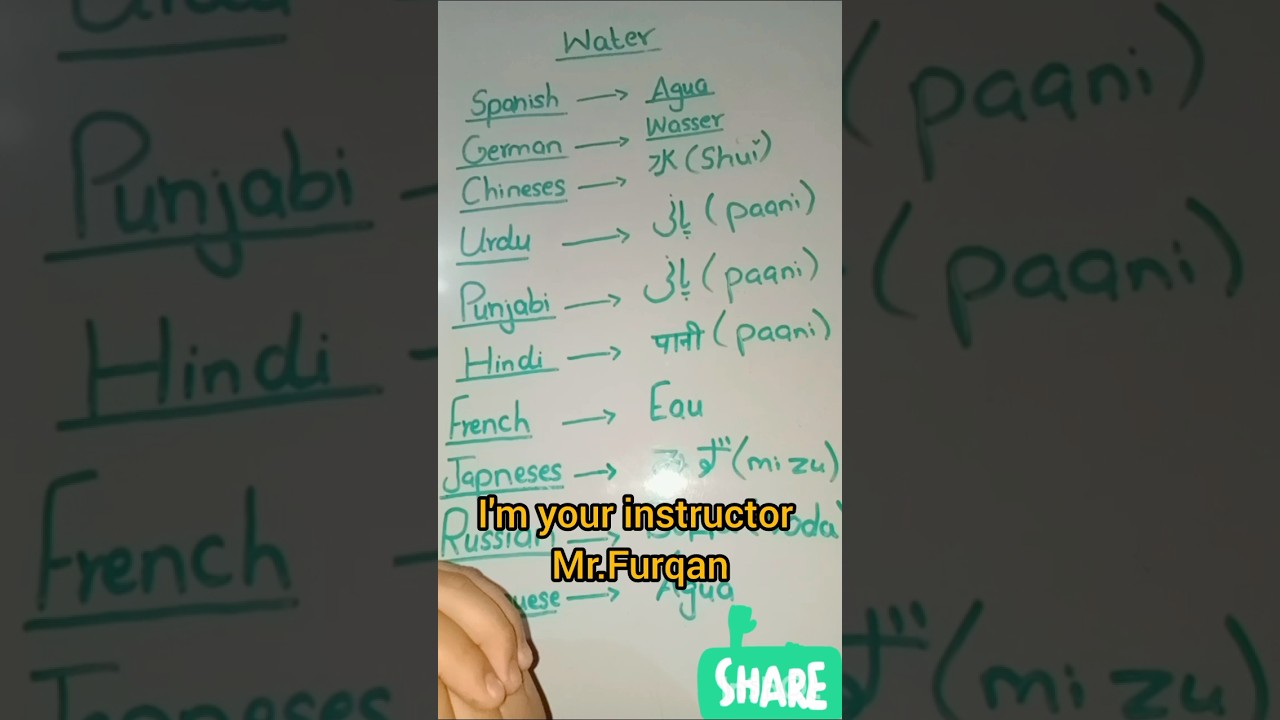 Water
Spanish → Agua
German → Wasser
Chineses → 水 (Shuǐ)
Urdu → پانی (paani)
Punjabi → پانی (paani)
Hindi → पानी (paani)
French → Eau
Japneses → みず (mi zu)
Russian →
→ Agua
I'm your instructor
Mr.Furqan
SHARE